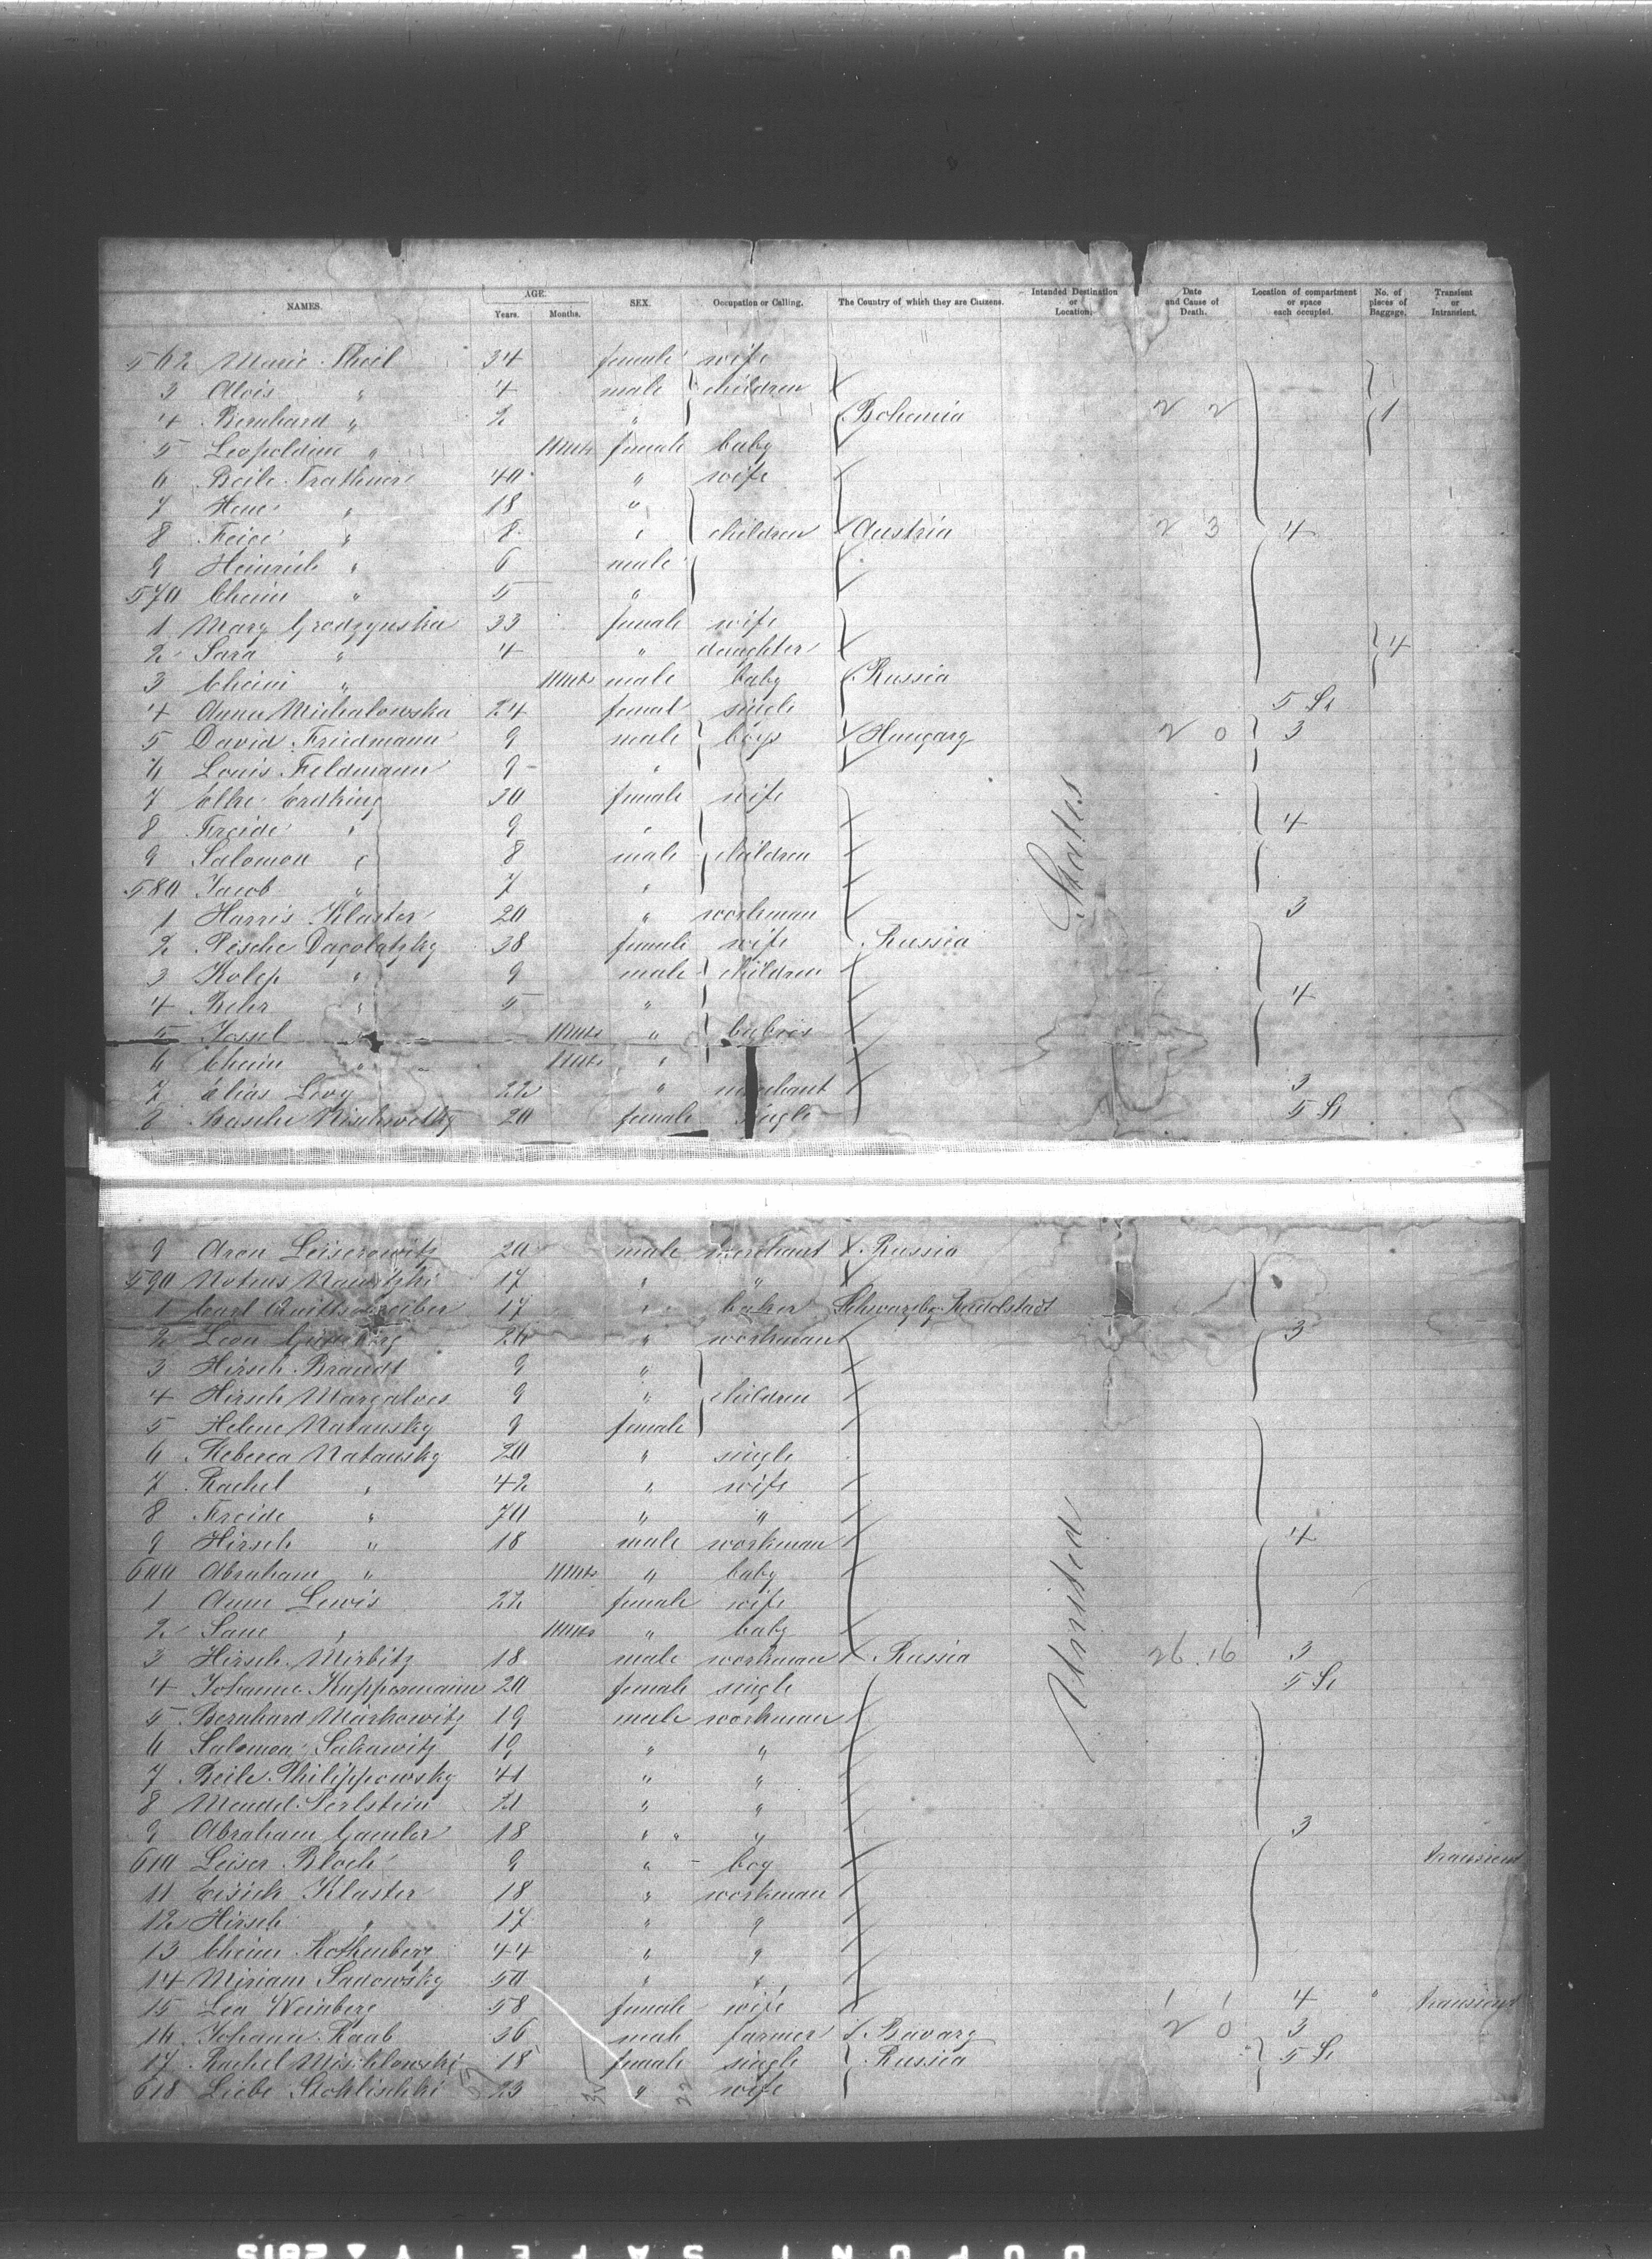 NAMES. AGE. Years. Months. SEX. Occupation or Calling. The Country of which they are Citizens. Intended Destination or Location. Date and Cause of Death. Location of compartment or space each occupied. No. of pieces of Baggage. Transient or Intransient.
562 Marie Theil 34 female wife
3 Alois " 4 male children
4 Bernhard " 2 " Bohemia 2 2 1
5 Leopoldine " female baby
6 Beile 40 " wife
7 Hene " 18 "
8 Feige " 8 " children Austria 2 3 4
9 Heinrich " 6 male
570 Chaim " 5 "
1 Mary Grodzynska 33 female wife
2 Sara " 4 " daughter 4
3 Chaim " male baby Russia
4 Anna Michalowska 24 femal single 5 St
5 David Friedmann 9 male boys Hungary 2 0 3
6 Louis Feldmann 9 "
7 Elke Erdking 30 female wife
8 Freide " 9 " 4
9 Salomon " 8 male children
580 Jacob " 7 "
1 Harris Klaster 20 " workman 3
2 38 female wife Russia
3 " 9 male children
4 Behr " 5 " 4
5 Jossel " " babies
6 Chaim " "
7 Elias Levy 22 " merchant 3
8 20 female single 5 St
9 Aron Leiserowitz 20 male merchant Russia
590 17 " "
1 Carl 17 " baker Schwarzbg. Rudolstadt
2 Leon 26 " workman 3
3 Hirsch Brandt 9 "
4 Hirsch Margaloes 9 " children
5 Helene Natansky 9 female
6 Rebecca Natansky 20 " single
7 Rachel " 42 " wife
8 Freide " 70 " "
9 Hirsch " 18 male workman 4
600 Abraham " " baby
1 Anne Lewis 22 female wife
2 " " baby
3 Hirsch Mirbitz 18 male workman Russia 26 16 3
4 Johanne Kuppermann 20 female single 5 St
5 Bernhard Markowitz 19 male workman
6 Salomon 19 " "
7 Beile Philippowsky 41 " "
8 Mendel Perlstein 21 " "
9 Abraham Gamler 18 " " 3
610 Leiser Bloch 9 " boy transient
11 Eisick Klaster 18 " workman
12 Hirsch " 17 " "
13 Chaim Rothenberg 44 " "
14 Miriam Sadowsky 50 " "
15 Lea Weinberg 58 female wife 1 1 4 " transient
16 Johann Raab 36 male farmer Bavary 2 0 3
17 Rachel Mischlowski 18 female single Russia 5 St
618 Liebe 23 " wife
United States